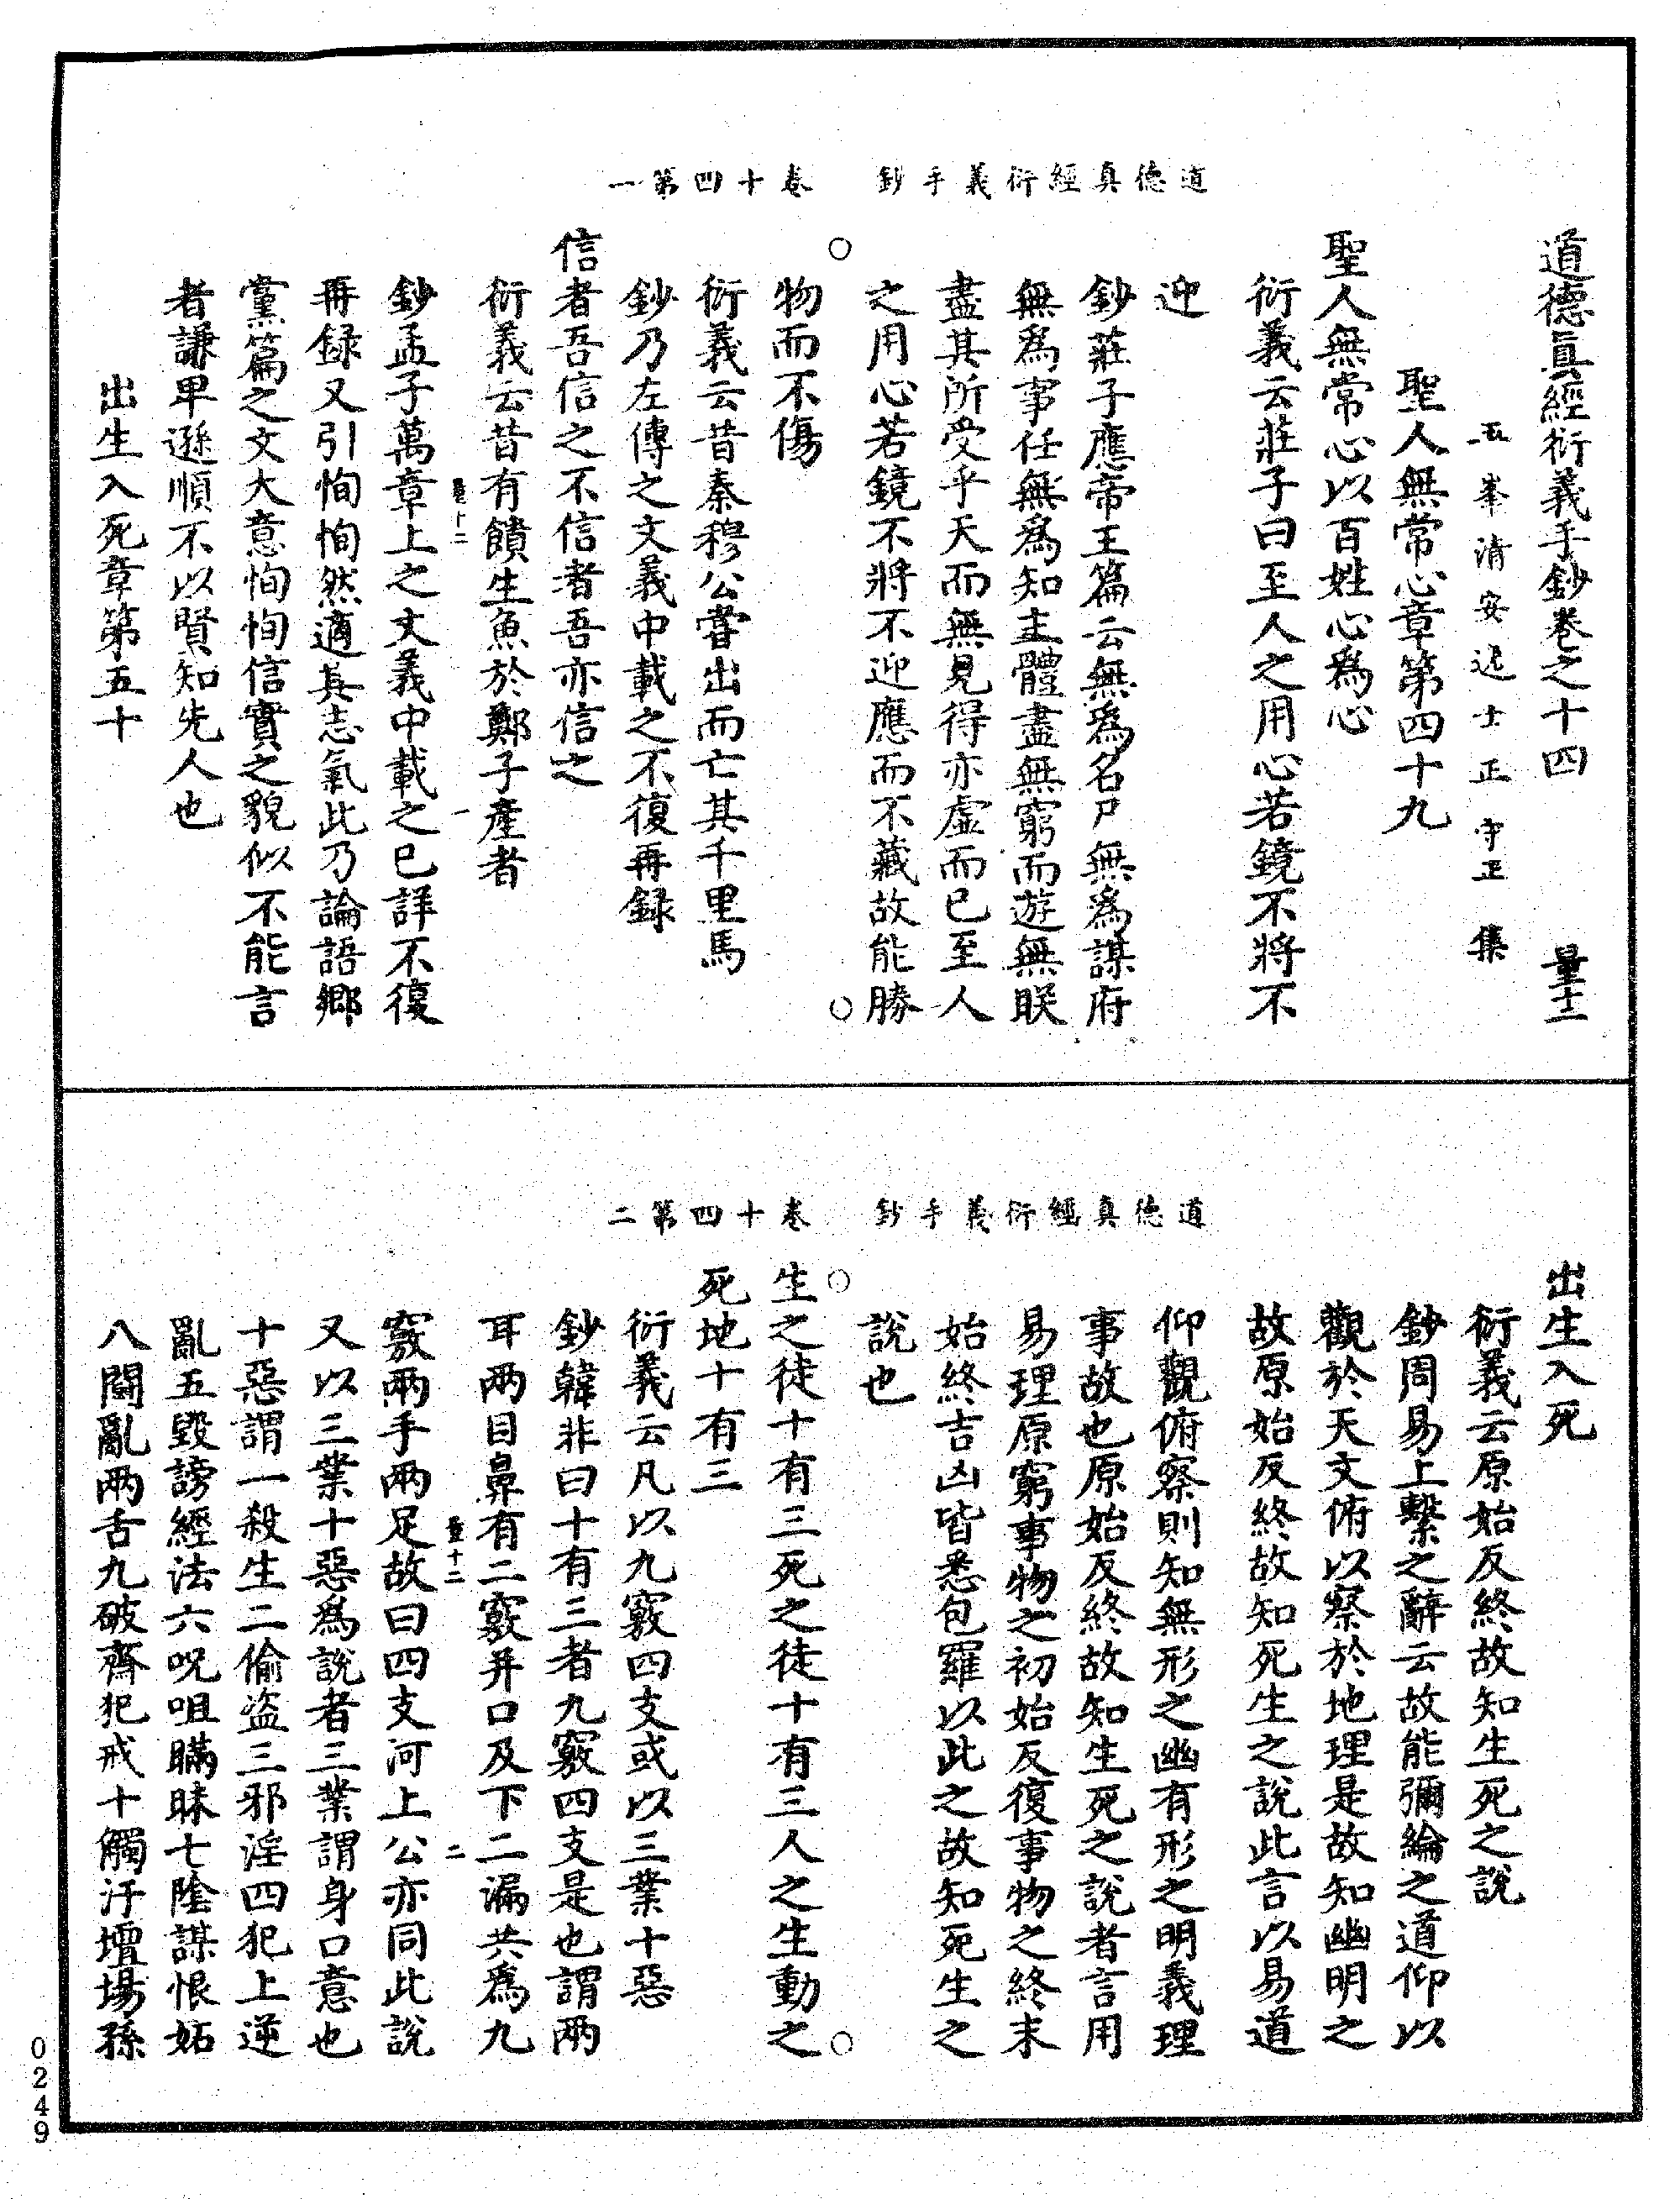 道德真經衍義手鈔　卷十四第一
道德真經衍義手鈔卷之十四　量十二
五峯清安逸士王守正集
聖人無常心章第四十九
聖人無常心以百姓心爲心
衍義云莊子曰至人之用心若鏡不將不
迎
鈔莊子應帝王篇云無爲名尸無爲謀府
無爲事任無爲知主體盡無窮而遊無朕
盡其所受乎天而無見得亦虛而已至人
之用心若鏡不將不迎應而不藏故能勝
物而不傷
衍義云昔秦穆公嘗出而亡其千里馬
鈔乃左傳之文義中載之不復再録
信者吾信之不信者吾亦信之
衍義云昔有饋生魚於鄭子產者
量十二　一
鈔孟子萬章上之文義中載之已詳不復
再録又引恂恂然適其志氣此乃論語鄉
黨篇之文大意恂恂信實之貌似不能言
者謙卑遜順不以賢知先人也
出生入死章第五十
道德真經衍義手鈔　卷十四第二
出生入死
衍義云原始反終故知生死之說
鈔周易上繫之辭云故能彌綸之道仰以
觀於天文俯以察於地理是故知幽明之
故原始反終故知死生之說此言以易道
仰觀俯察則知無形之幽有形之明義理
事故也原始反終故知生死之說者言用
易理原窮事物之初始反復事物之終末
始終吉凶皆悉包羅以此之故知死生之
說也
生之徒十有三死之徒十有三人之生動之
死地十有三
衍義云凡以九竅四支或以三業十惡
鈔韓非曰十有三者九竅四支是也謂兩
耳兩目鼻有二竅并口及下二漏共爲九
量十二　二
竅兩手兩足故曰四支河上公亦同此說
又以三業十惡爲說者三業謂身口意也
十惡謂一殺生二偷盜三邪淫四犯上逆
亂五毀謗經法六呪咀瞞昧七陰謀恨妬
八鬪亂兩舌九破齋犯戒十觸汙壇場孫
0249